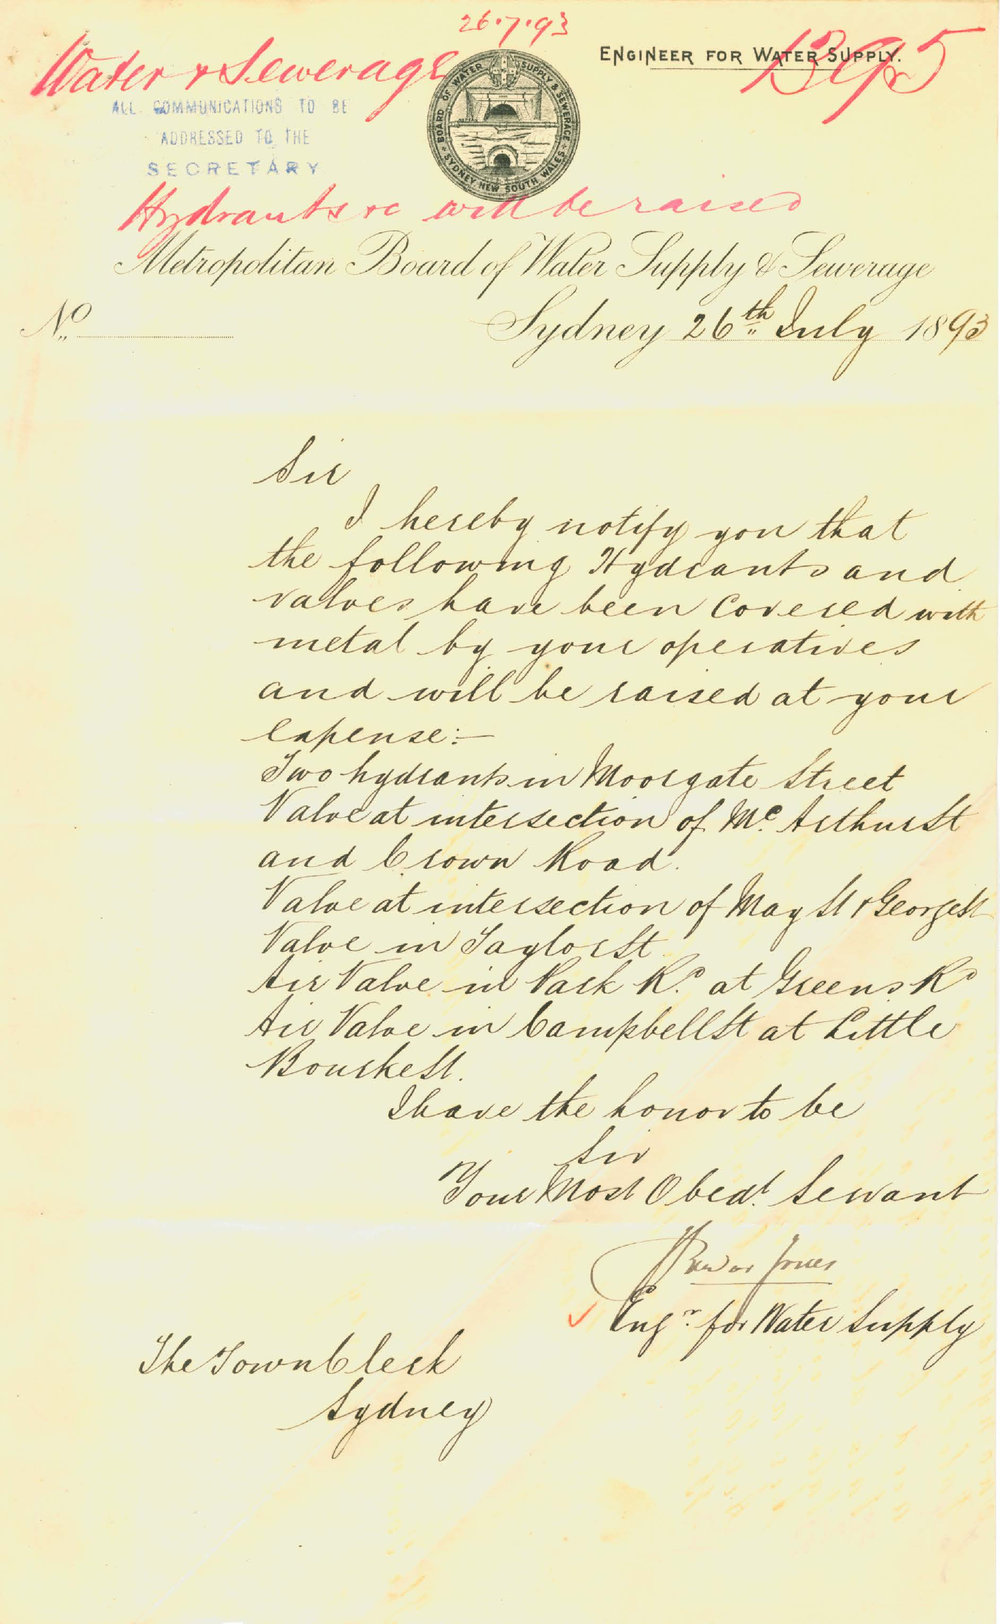 26.7.93
Water & Sewerage
ENGINEER FOR WATER SUPPLY.
1395
ALL COMMUNICATIONS TO BE
ADDRESSED TO THE
SECRETARY
BOARD OF WATER SUPPLY & SEWERAGE
SYDNEY NEW SOUTH WALES
Hydrants &c will be raised
Metropolitan Board of Water Supply & Sewerage
No
Sydney 26th July 1893
Sir
I hereby notify you that
the following Hydrants and
valves have been covered with
metal by your operatives
and will be raised at your
expense:-
Two hydrants in Moorgate Street
Valve at intersection of Mc Arthur St
and Crown Road.
Valve at intersection of May St & George St
Valve in Taylor St
Air Valve in Park Rd at Greens Rd
Air Valve in Campbell St at Little
Bourke St.
I have the honor to be
Sir
Your Most Obedt. Servant
Jones
Engr. for Water Supply
The Town Clerk
Sydney